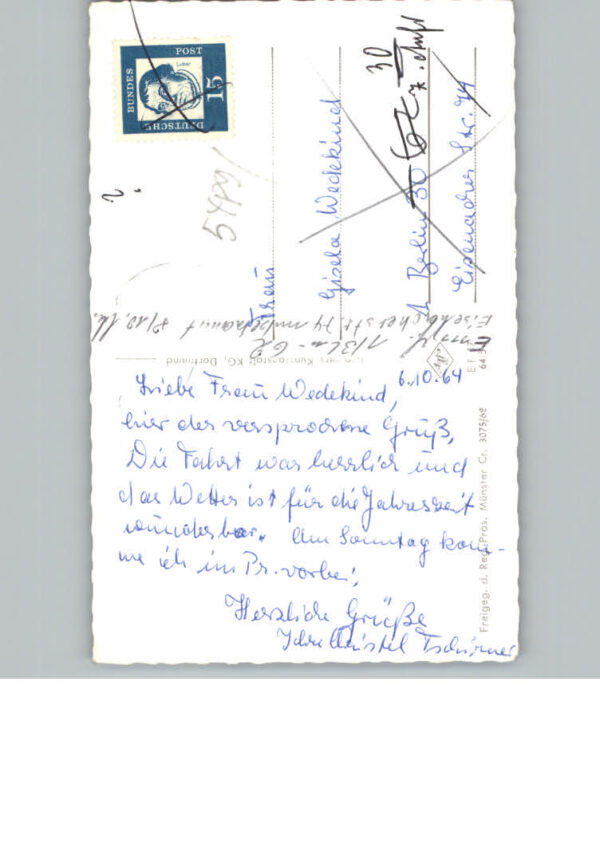 Luther
DEUTSCHE
BUNDES
POST
15
Frau
Gisela Wedekind
1 Berlin 30
Eisenacher Str. 74
30
62
Kunstanstalt KG, Dortmund
Freigeg. d. Reg. Präs. Münster Cr. 3075/62
6.10.64
Liebe Frau Wedekind,
hier der versprochene Gruß.
Die Fahrt war herrlich und
das Wetter ist für die Jahreszeit
wunderbar. Am Sonntag kom-
me ich im Pr. vorbei!
Herzliche Grüße
Ihre Christel Tschirner